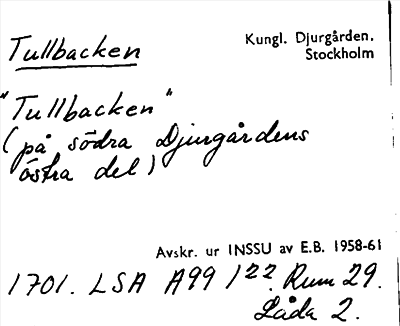 Tullbacken
Kungl. Djurgården.
Stockholm
"Tullbacken"
(på södra Djurgårdens
östra del)
Avskr. ur INSSU av E.B. 1958-61
1701. LSA A99 122. Rum 29.
Låda 2.